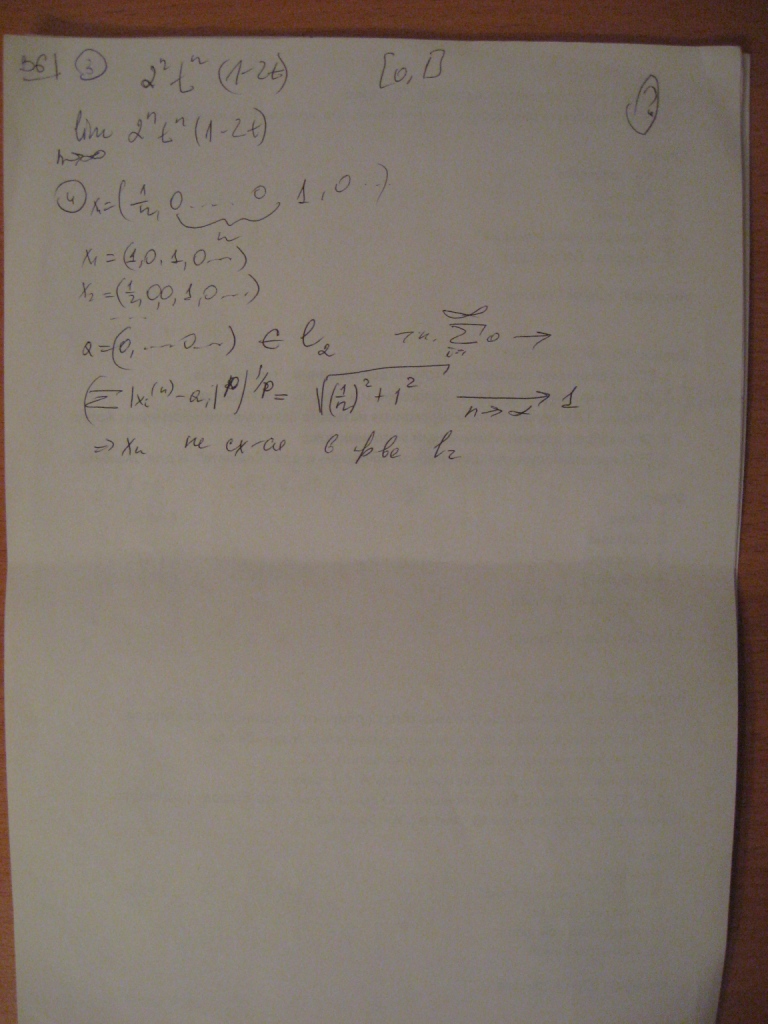 361 ③ 2ⁿtⁿ(1-2t) [0,1]
lim 2ⁿtⁿ(1-2t)
n→∞
④ x=(1/n, 0.....0, 1, 0...)
n
x₁=(1,0,1,0...)
x₂=(1/2,0,0,1,0...)
a=(0,....0...) ∈ l₂ т.к. ∑0 →
(∑|xᵢ⁽ⁿ⁾-aᵢ|ᵖ)^1/p = √((1/n)²+1²) → 1
n→∞
⇒ xₙ не сх-ся в пр-ве l₂